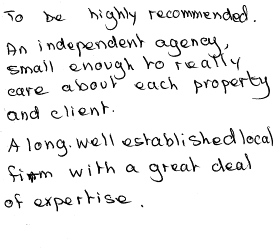 To be highly recommended.
An independent agency,
small enough to really
care about each property
and client.
A long. well established local
firm with a great deal
of expertise.